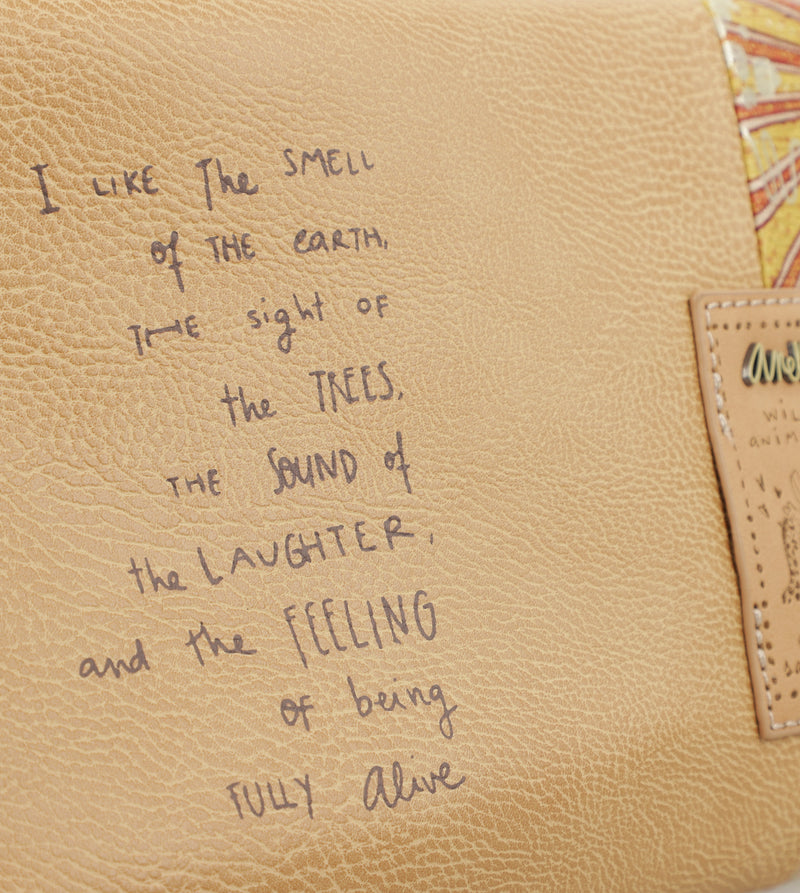 I LIKE The SMELL
of THE eARTH,
THE sight OF
the TREES,
THE SOUND of
the LAUGHTER,
and the FEELING
of being
FULLY Alive